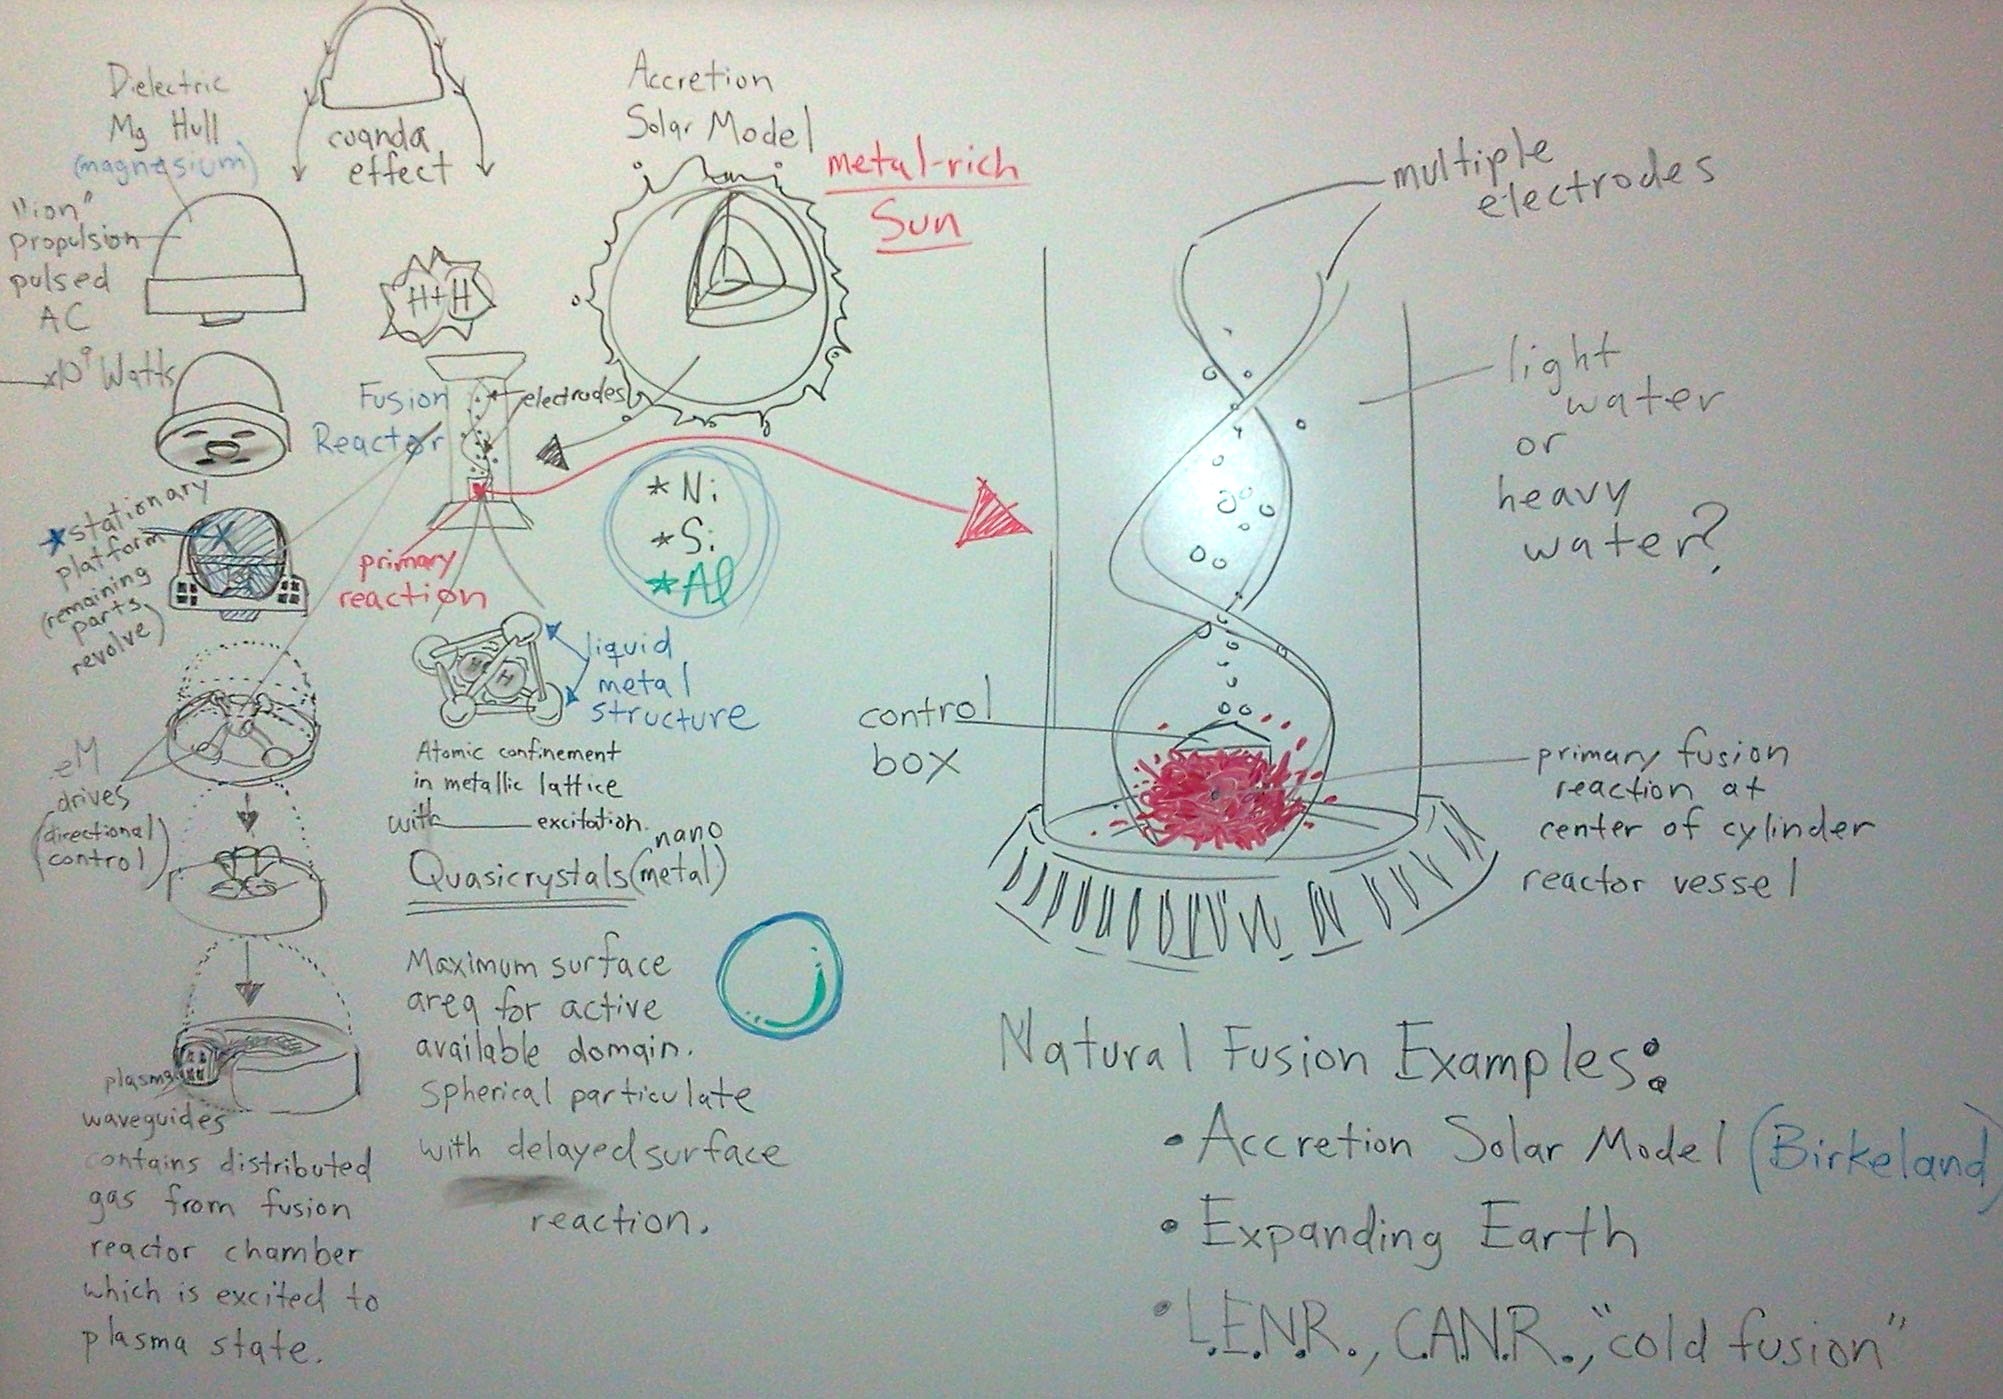 Dielectric
Mg Hull
(magnesium)
coanda
effect
"ion"
propulsion
pulsed
AC
x10⁹ Watts
Accretion
Solar Model
metal-rich
Sun
H+H
Fusion
Reactor
electrodes
primary
reaction
* Ni
* Si
* Al
*stationary
platform
(remaining
parts
revolve)
liquid
metal
structure
H
H
Atomic confinement
in metallic lattice
with______ excitation.
Quasicrystals (nano
metal)
eM
drives
(directional
control)
Maximum surface
area for active
available domain.
spherical particulate
with delayed surface
reaction.
plasma
waveguides
contains distributed
gas from fusion
reactor chamber
which is excited to
plasma state.
multiple
electrodes
light
water
or
heavy
water?
control
box
primary fusion
reaction at
center of cylinder
reactor vessel
Natural Fusion Examples:
• Accretion Solar Model (Birkeland)
• Expanding Earth
• L.E.N.R., C.A.N.R., "cold fusion"